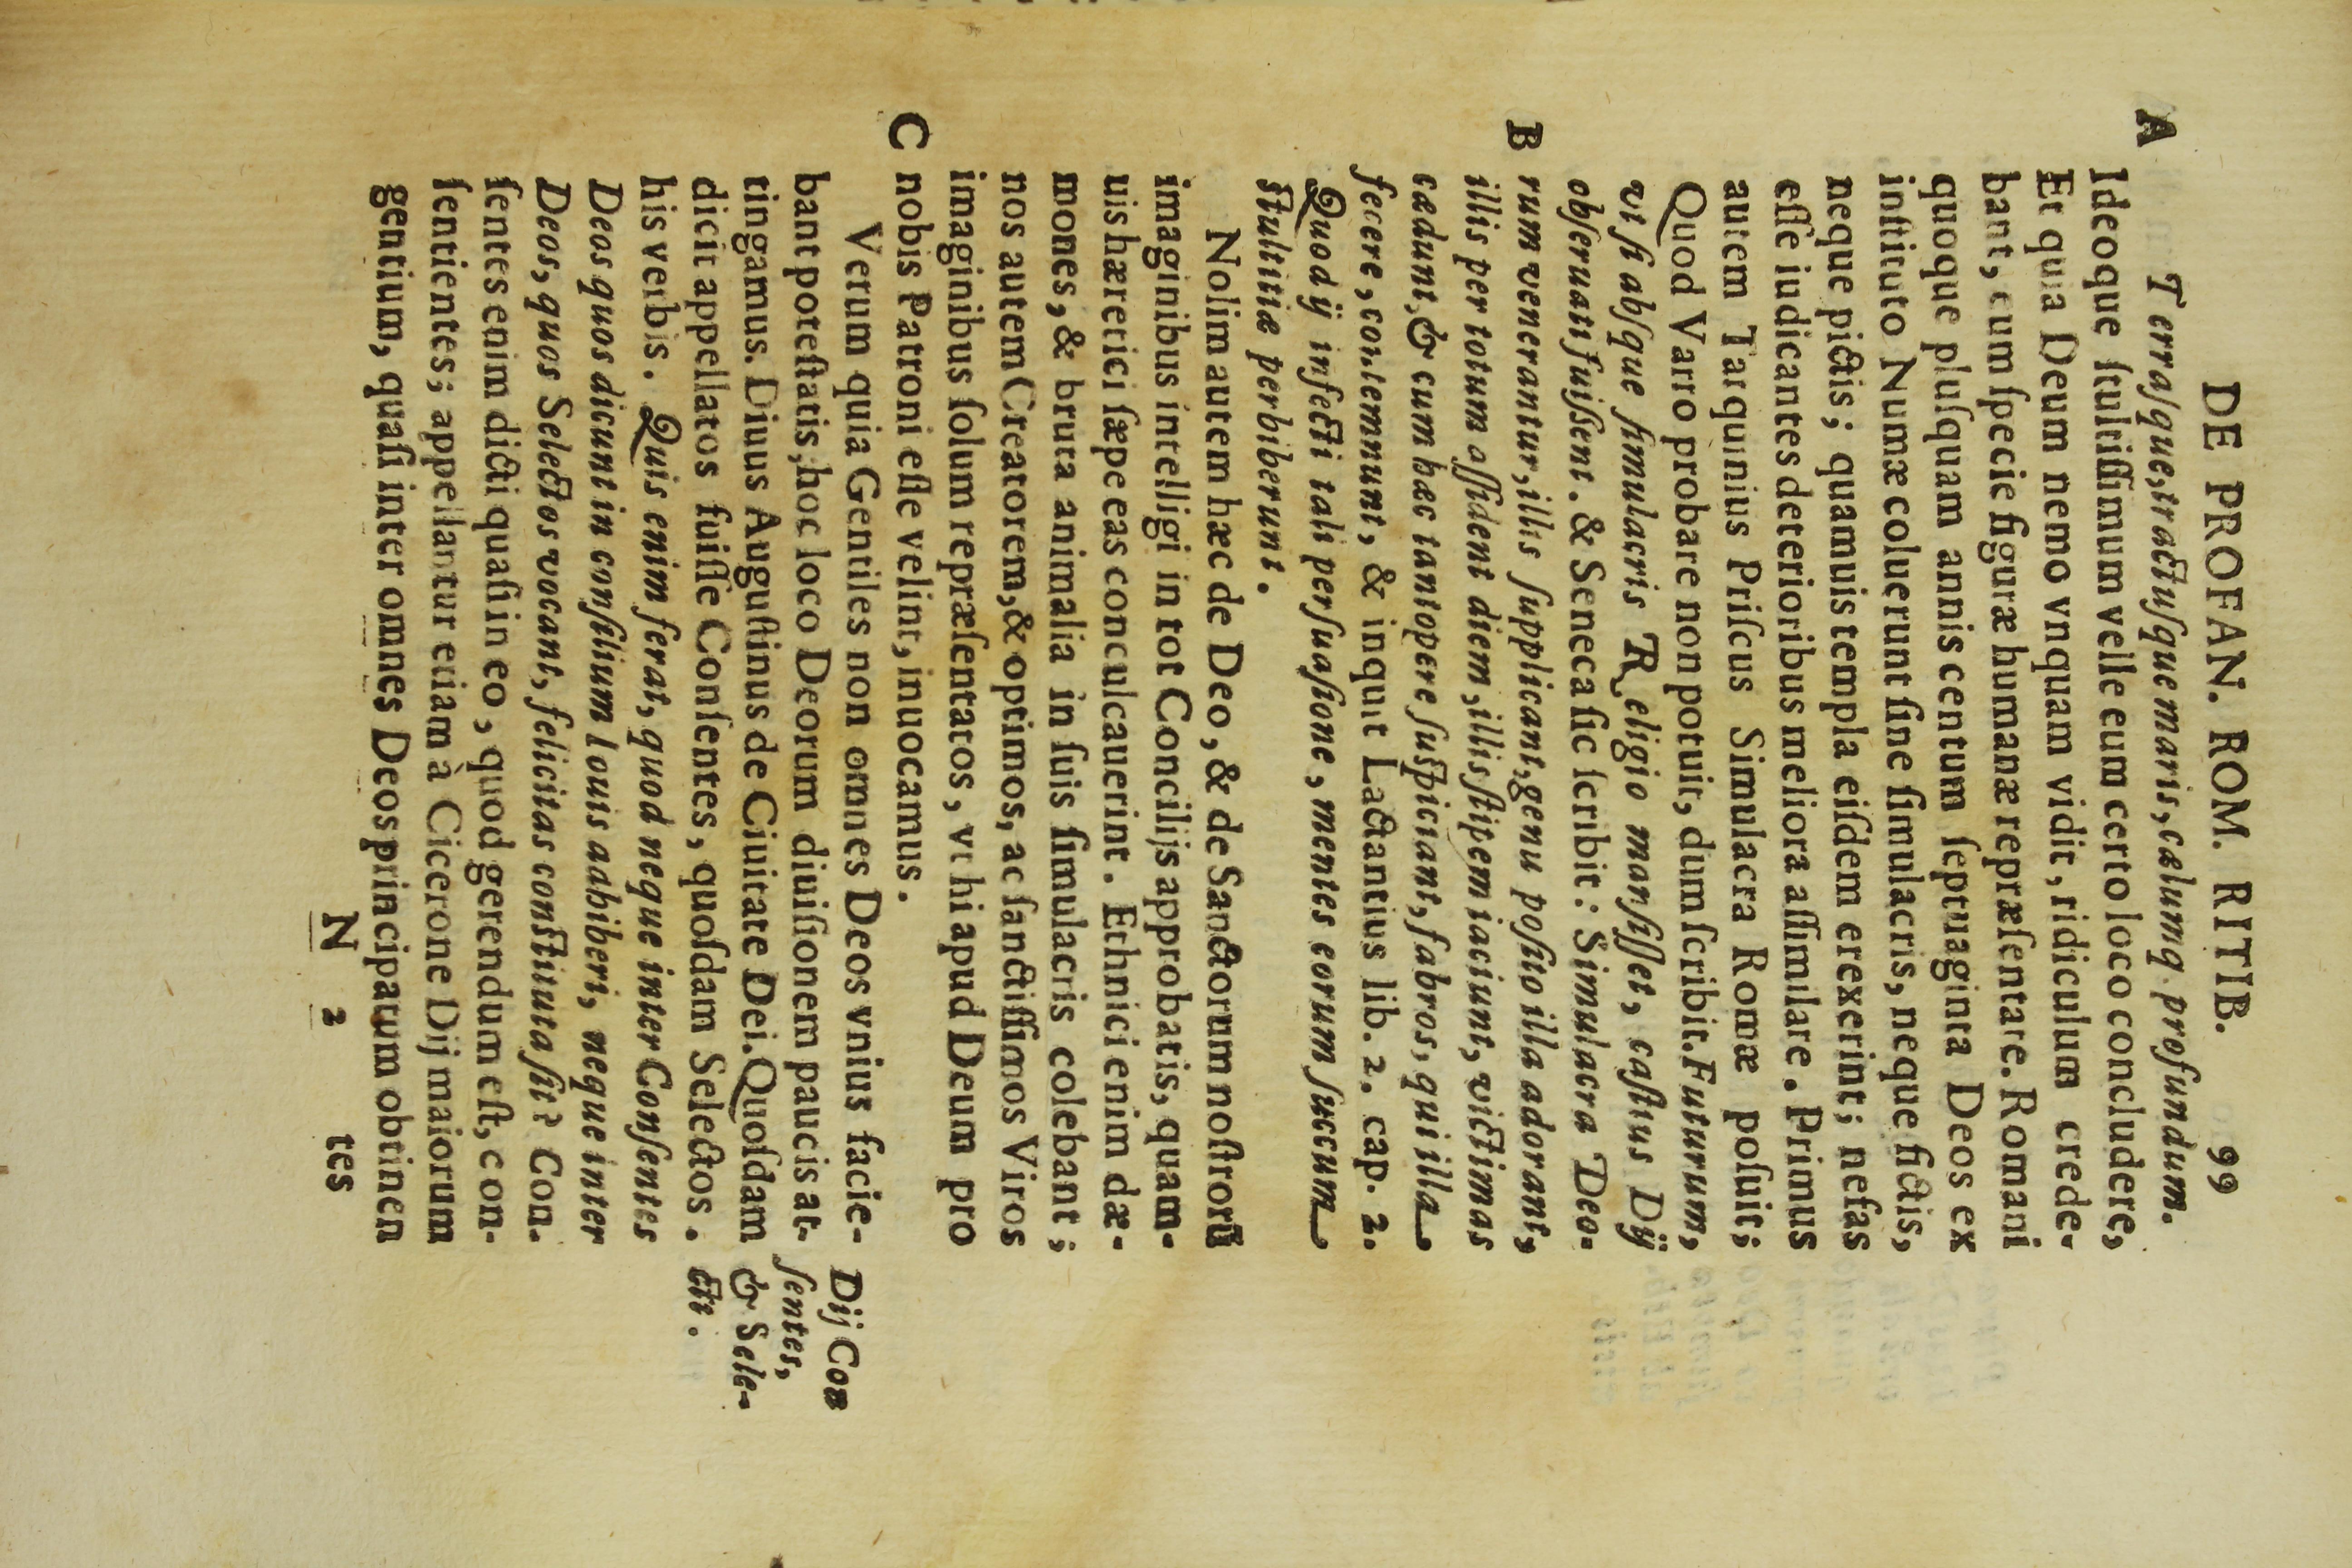 DE PROFAN. ROM. RITIB. 99
A Terraſque, tractuſque maris, cælumq. profundum.
Ideoque ſtultiſſimum velle eum certo loco concludere,
Et quia Deum nemo vnquam vidit, ridiculum crede-
bant, cum ſpecie figuræ humanæ repræſentare. Romani
quoque pluſquam annis centum ſeptuaginta Deos ex
inſtituto Numæ coluerunt ſine ſimulacris, neque fictis,
neque pictis; quamuis templa eiſdem erexerint; nefas
eſſe iudicantes deterioribus meliora aſſimilare. Primus
autem Tarquinius Priſcus Simulacra Romæ poſuit;
Quod Varro probare non potuit, dum ſcribit. Futurum,
vt ſi abſque ſimulacris Religio manſiſſet, caſtius Dij
obſeruati fuiſſent. & Seneca ſic ſcribit: Simulacra Deo-
B rum venerantur, illis ſupplicant, genu poſito illa adorant,
illis per totum aſſident diem, illis ſtipem iaciunt, victimas
cædunt, & cum hæc tantopere ſuſpiciant, fabros, qui illa
fecere, contemnunt, & inquit Lactantius lib. 2. cap. 2.
Quod ij infecti tali perſuaſione, mentes eorum ſuccum
ſtultitiæ perbiberunt.
Nolim autem hæc de Deo, & de Sanctorum noſtrorũ
imaginibus intelligi in tot Concilijs approbatis, quam-
uis hæretici ſæpe eas conculcauerint. Ethnici enim dæ-
mones, & bruta animalia in ſuis ſimulacris colebant;
nos autem Creatorem, & optimos, ac ſanctiſſimos Viros
imaginibus ſolum repræſentatos, vt hi apud Deum pro
C nobis Patroni eſſe velint, inuocamus.
Verum quia Gentiles non omnes Deos vnius facie-
bant poteſtatis, hoc loco Deorum diuiſionem paucis at-
tingamus. Diuus Auguſtinus de Ciuitate Dei. Quoſdam
dicit appellatos fuiſſe Conſentes, quoſdam Selectos.
his verbis. Quis enim ferat, quod neque inter Conſentes
Deos quos dicunt in conſilium Iouis adhiberi, neque inter
Deos, quos Selectos vocant, felicitas conſtituta ſit? Con-
ſentes enim dicti quaſi in eo, quod gerendum eſt, con-
ſentientes; appellantur etiam à Cicerone Dij maiorum
gentium, quaſi inter omnes Deos principatum obtinen
N 2 tes
Dij Con
ſentes,
& Sele-
cti.